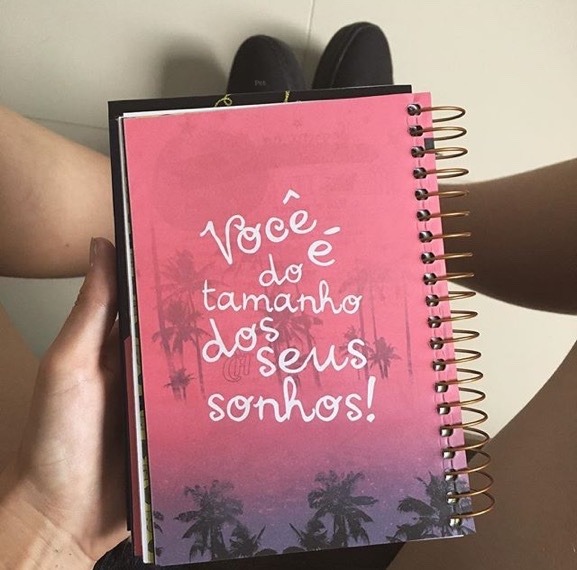 Você é
do
tamanho
dos
seus
sonhos!